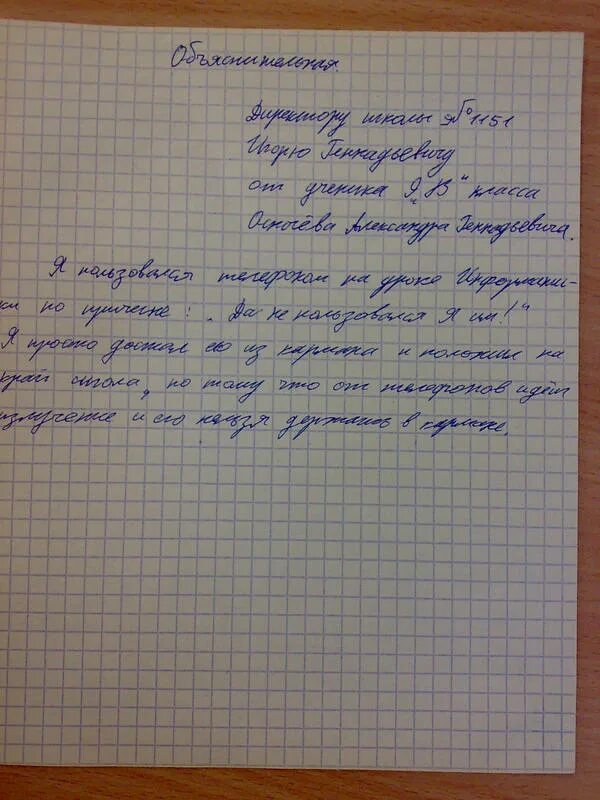 Объяснительная.
Директору школы №1151
Игорю Геннадьевичу
от ученика 9 „В" класса
Александра Геннадьевича.
Я пользовался телефоном на уроке Информати-
ки по причене: „Да не пользовался Я им!"
Я просто достал его из кармана и положил на
край стола, по тому что от телефонов идёт
излучение и его нельзя держать в кармане.